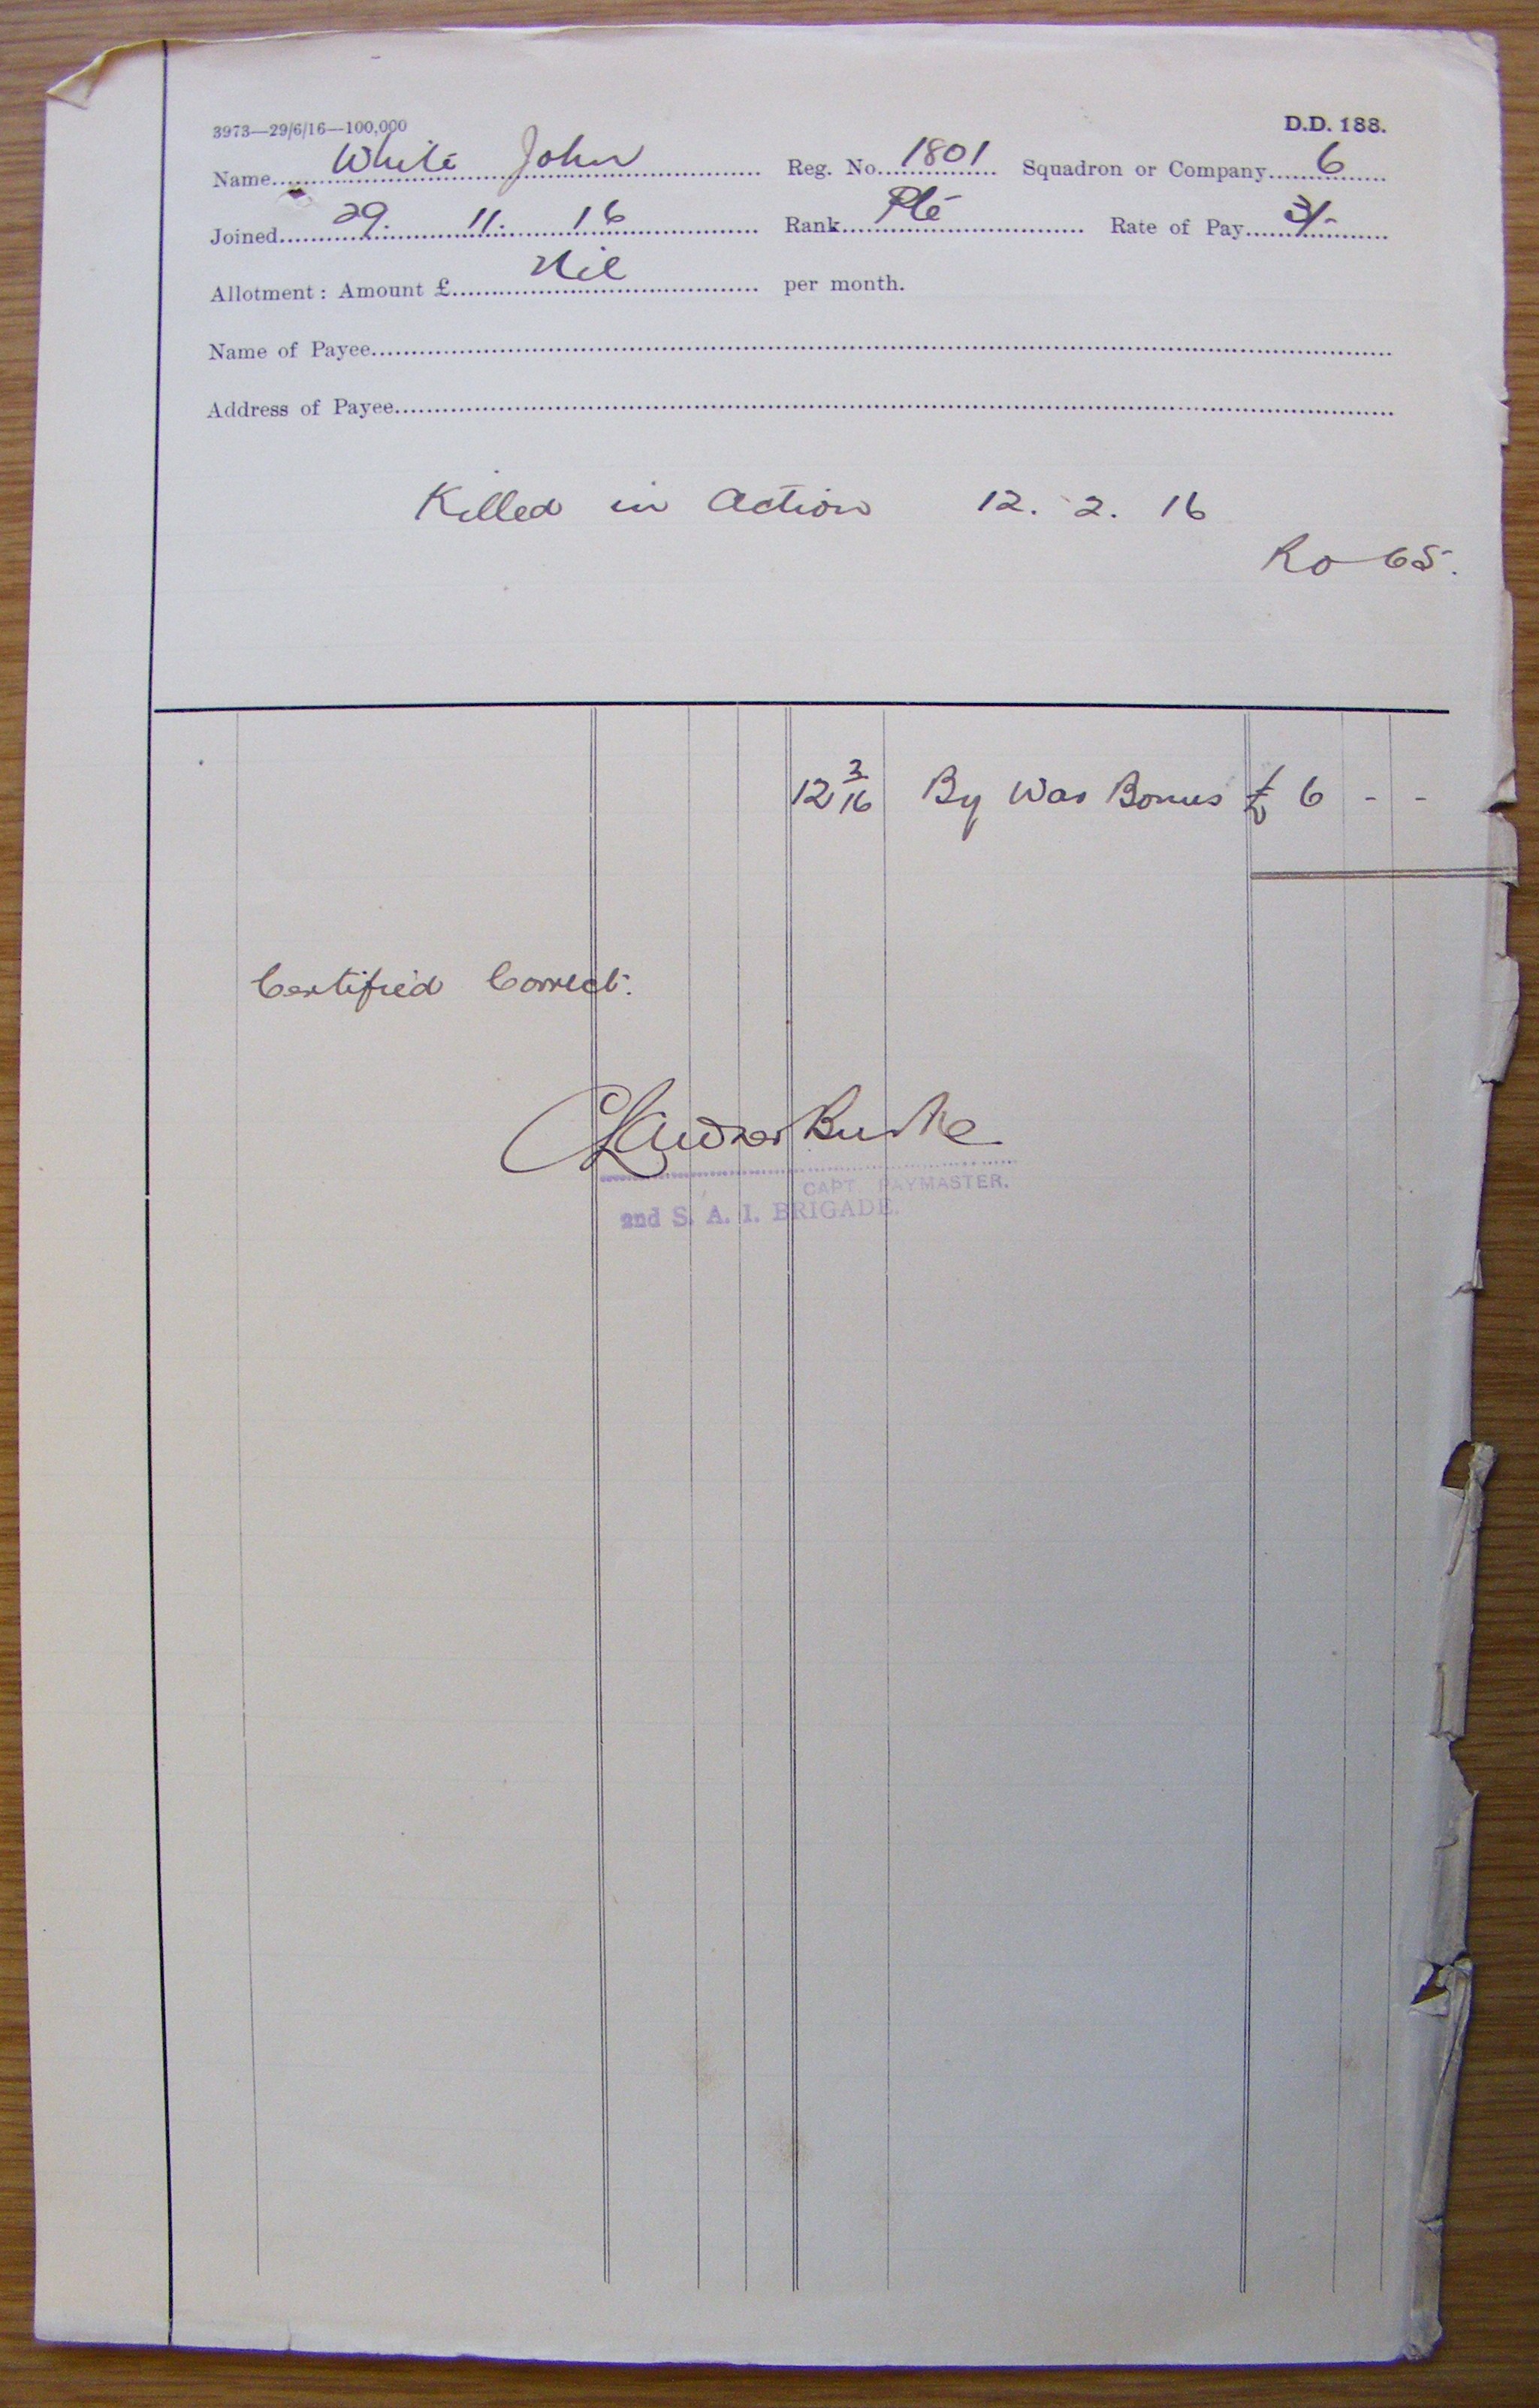 3973—29/6/16—100,000 D.D. 188.
Name White John Reg. No. 1801 Squadron or Company 6
Joined 29. 11. 16 Rank Pte Rate of Pay 3/-
Allotment: Amount £ Nil per month.
Name of Payee
Address of Payee
Killed in Action 12. 2. 16
Ro 65.
12 2/16 By War Bonus £ 6 - -
Certified Correct.
CAPT. PAYMASTER.
2nd S. A. I. BRIGADE.